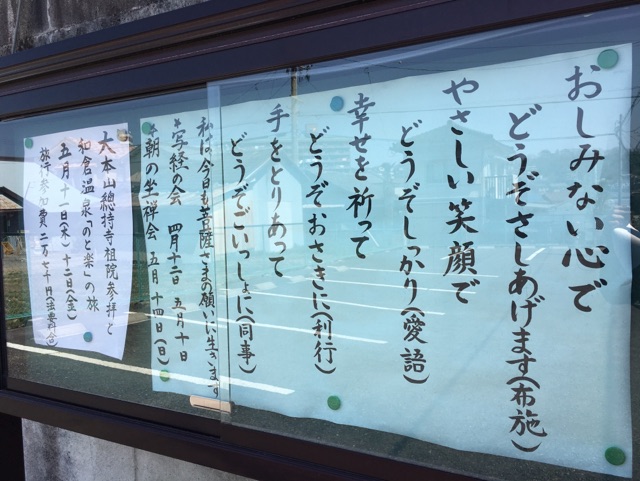 おしみない心で
どうぞさしあげます(布施)
やさしい笑顔で
どうぞしっかり(愛語)
幸せを祈って
どうぞおさきに(利行)
手をとりあって
どうぞごいっしょに(同事)
私は今日も菩薩さまの願いに生きます
*写経の会 四月十二日 五月十日
*朝の坐禅会 五月十四日(日)
大本山總持寺祖院参拝と
和倉温泉「のと楽」の旅
五月十一日(木)十二日(金)
旅行参加費二万七千円(法要含)